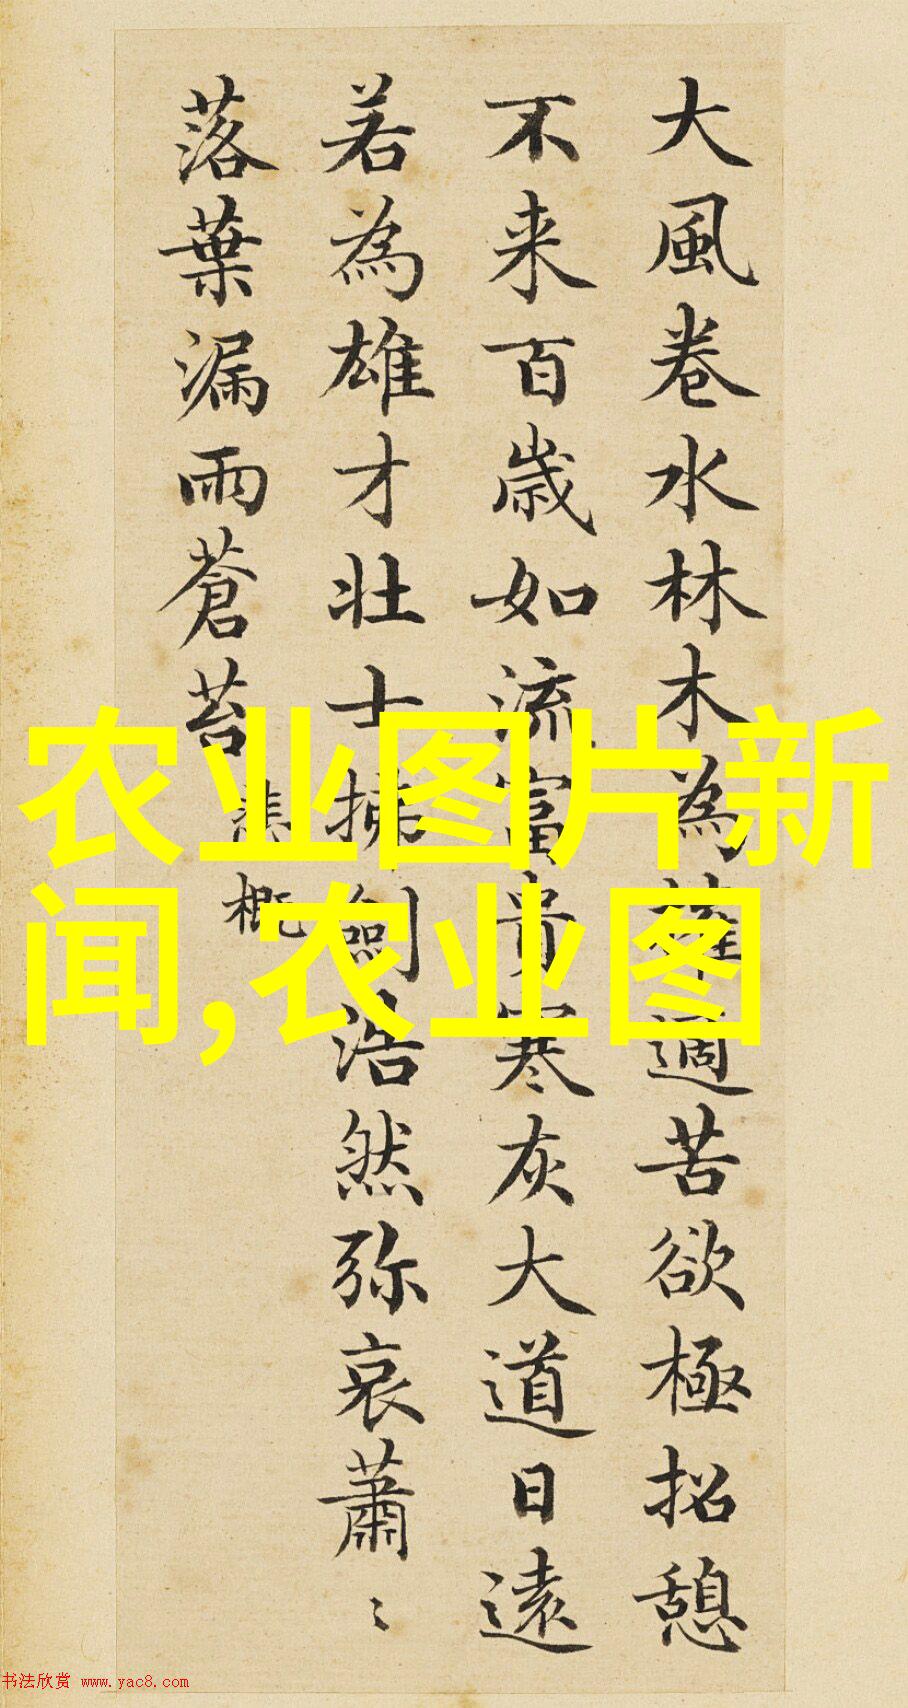 大風卷水林木為摧適苦欲極招憩
不来百歳如流富貴寒灰大道日遠
若為雄才壯士拂劍浩然弥哀蕭〻
落葉漏雨蒼苔
悲概
农业图片新
闻,农业图
书法欣赏 www.yac8.com